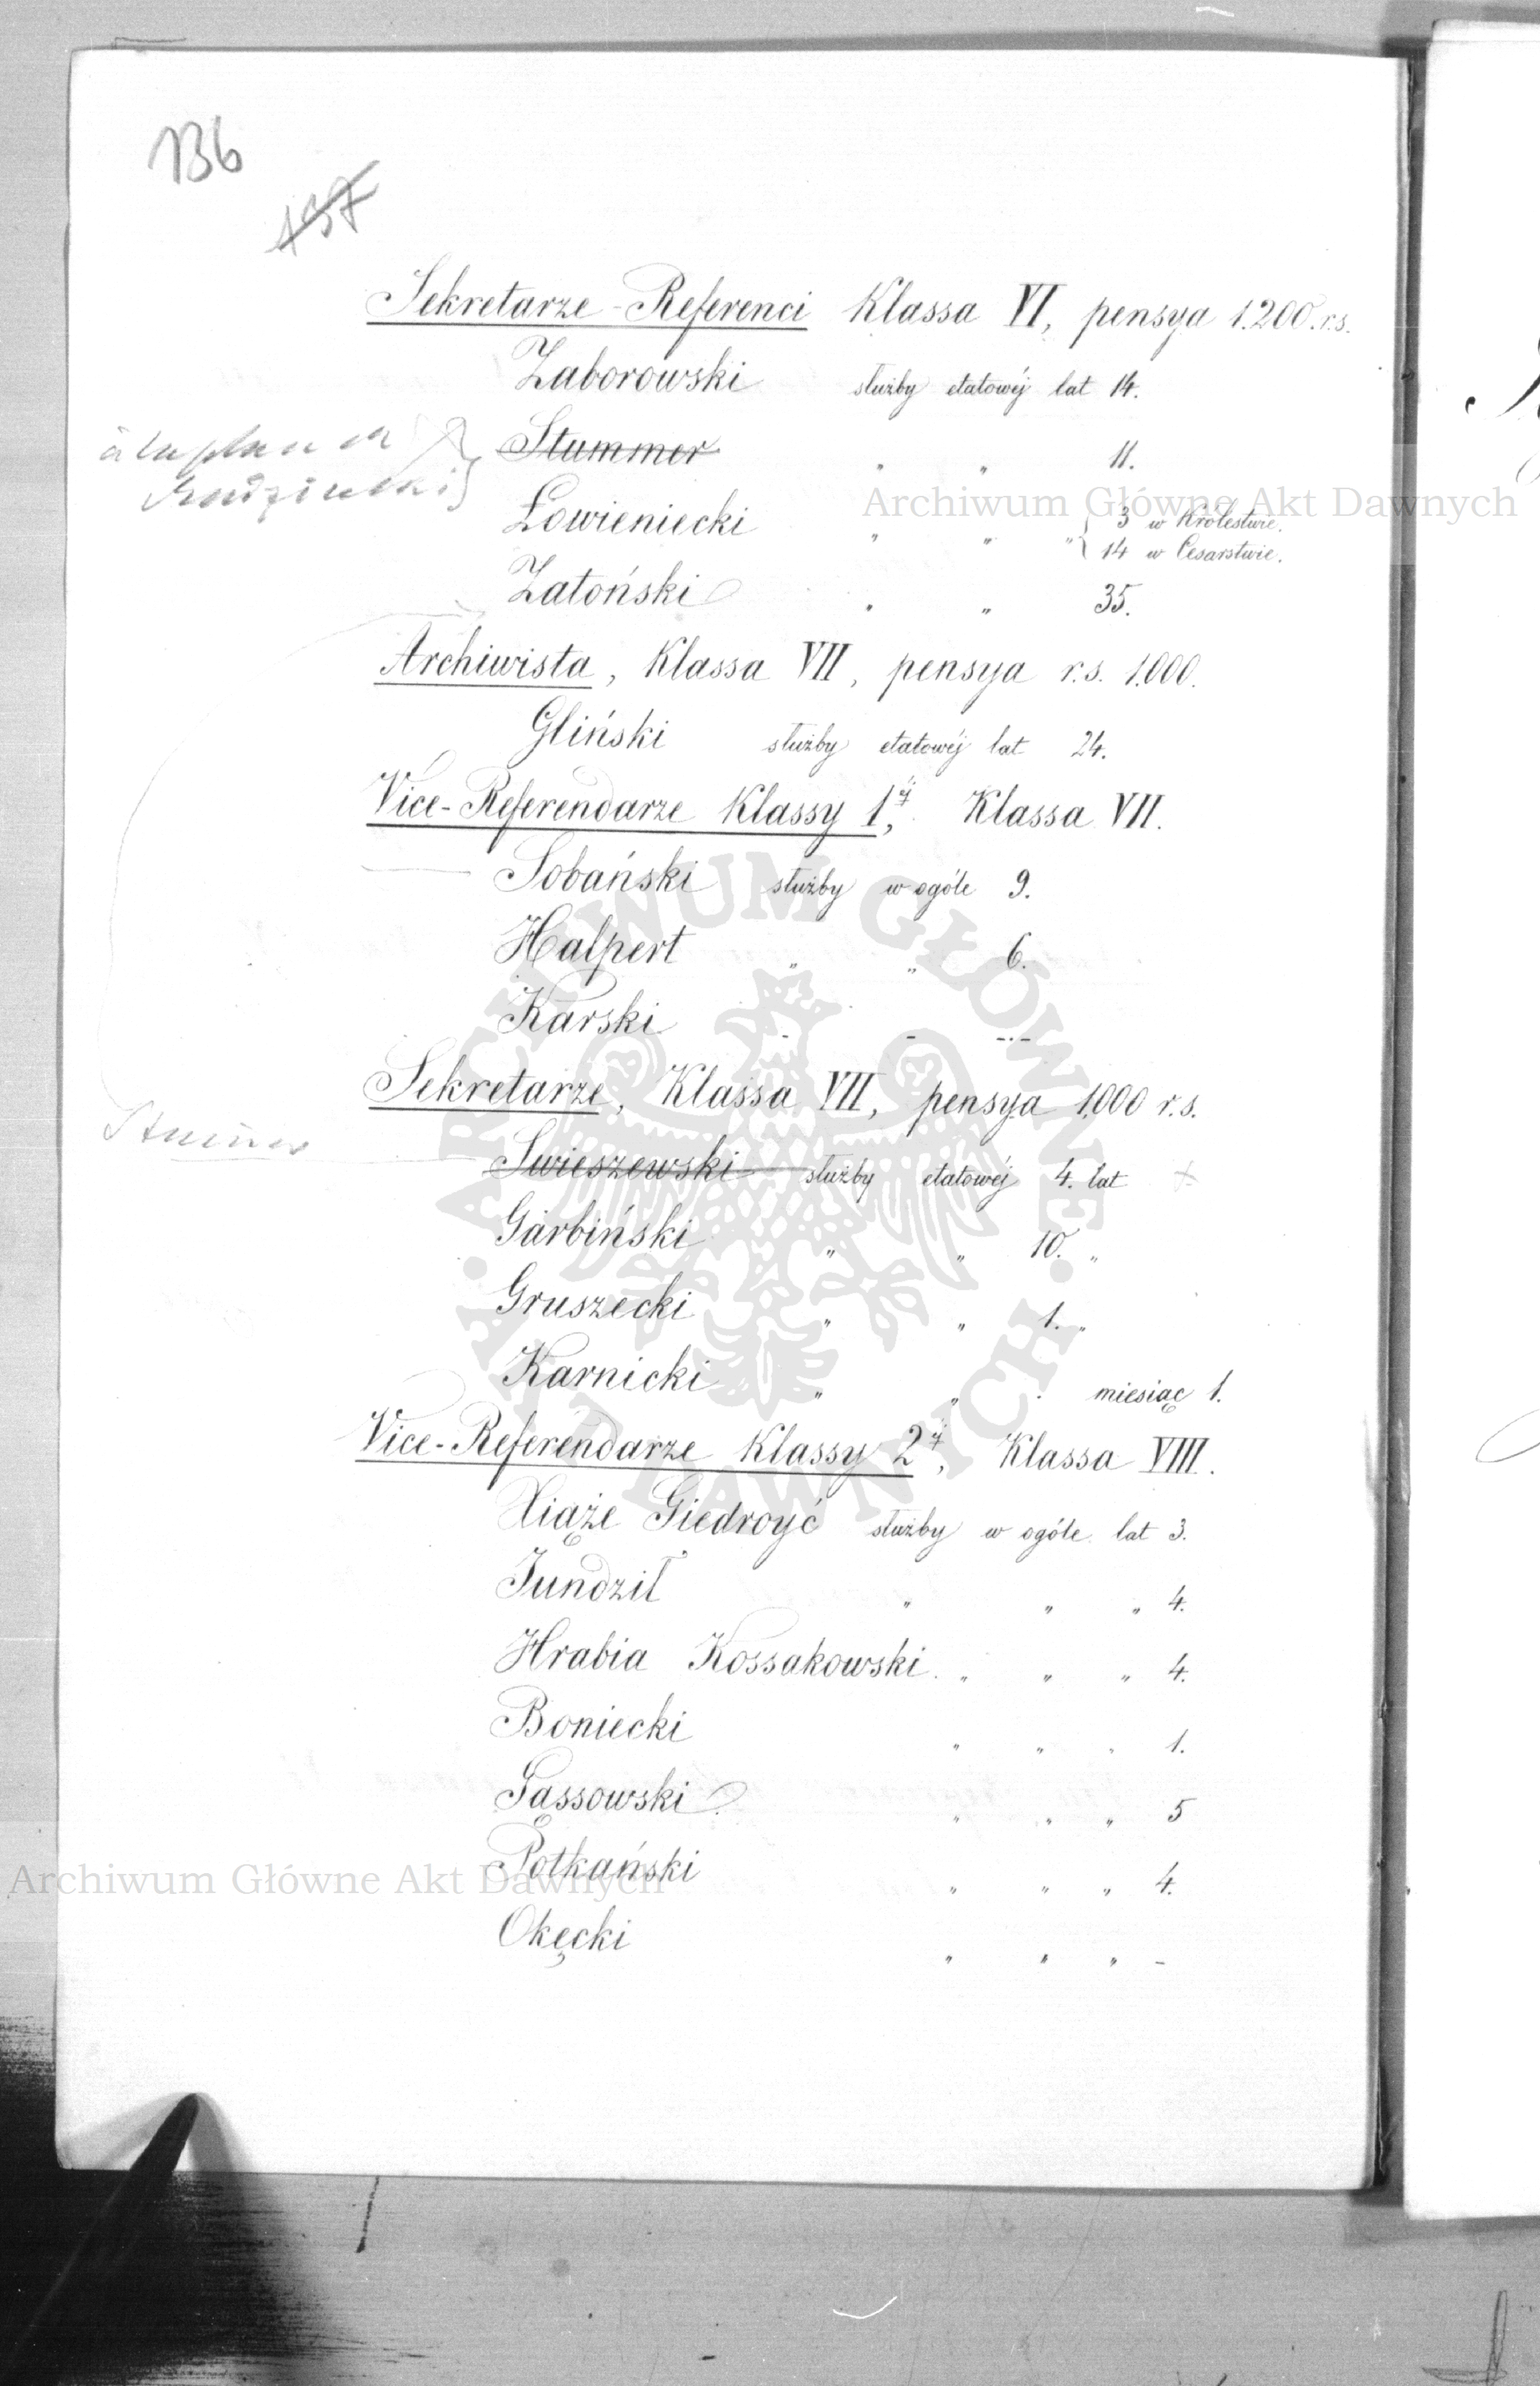 136
137
Sekretarze-Referenci Klassa VI, pensya 1.200. r.s.
Zaborowski służby etatowéj lat 14.
à la place
Stummer " " 11.
Archiwum Główne Akt Dawnych
Łowieniecki " " " } 3 w Królestwie.
14 w Cesarstwie.
Zatoński " " 35.
Archiwista, Klassa VII, pensya r.s. 1.000.
Gliński służby etatowéj lat 24.
Vice-Referendarze Klassy 1éj, Klassa VII.
Sobański służby w ogóle 9.
Halpert " " 6.
Karski - - -.-
Sekretarze, Klassa VII, pensya 1.000 r.s.
Stummer
Swieszewski służby etatowéj 4. lat +
Garbiński " " 10. "
Gruszecki " " 1. "
Karnicki " " . miesiąc 1.
Vice-Referendarze Klassy 2éj, Klassa VIII.
Xiąże Giedroyć służby w ogóle lat 3.
Jundził " " " 4.
Hrabia Kossakowski " " " 4.
Boniecki " " " 1.
Gąssowski " " " 5
Potkański " " " 4.
Archiwum Główne Akt Dawnych
Okęcki " " " -
ARCHIWUM GŁÓWNE • AKT DAWNYCH •